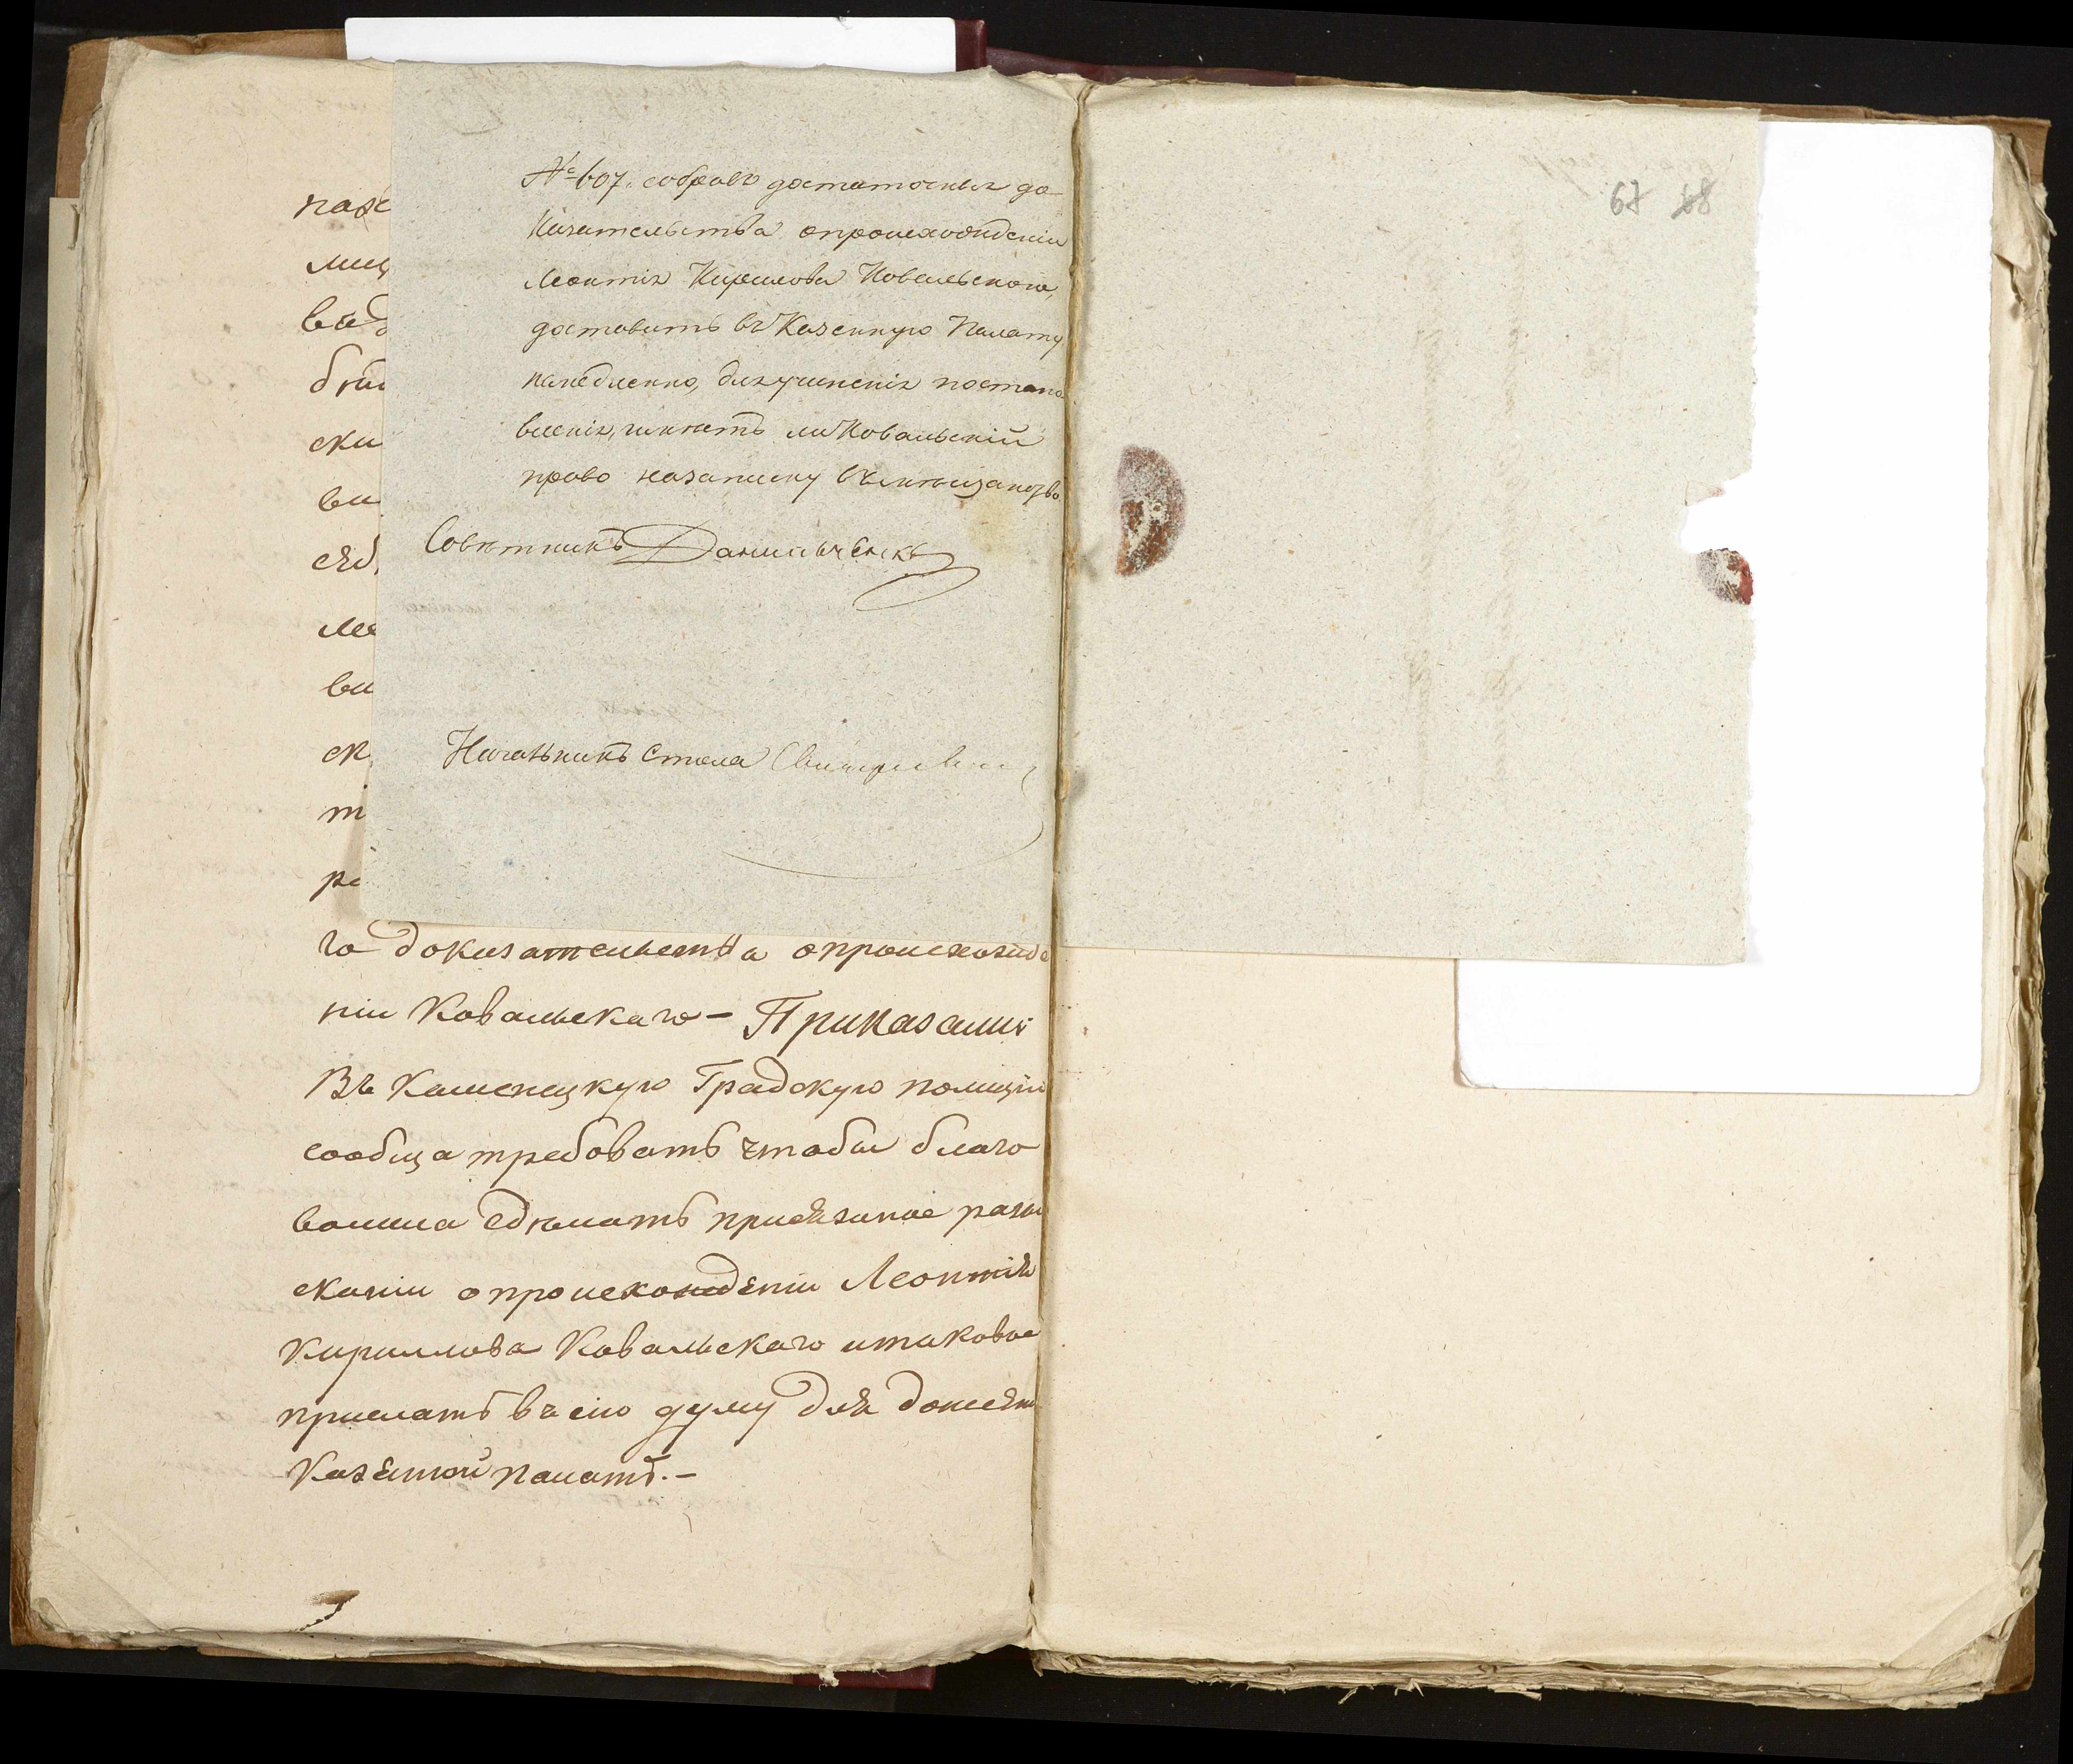 67 68
№ 607. собравъ достаточныя до
казательства опроисхожденіи
Леонтія Кирилова Ковальскаго,
доставить въ Казенную Палату
немедленно, дляучиненія постано
вленія, имѣетъ ли Ковальскій
право назаписку въ мѣщанство.
Совѣтникъ Данильченко
Начальникъ Стола
мищ
бы
ски
ви
ск
т
го доказательства опроисхожде
ніи Ковальскаго – Приказали:
Въ Каменецкую Градскую полицію
сообща требовать чтобы благо
волила сдѣлать присяжное разы
сканіи опроисхожденіи Леонтія
Кириллова Ковальскаго итаковое
прислать въ сію думу для донесен
Казенной палатѣ.–